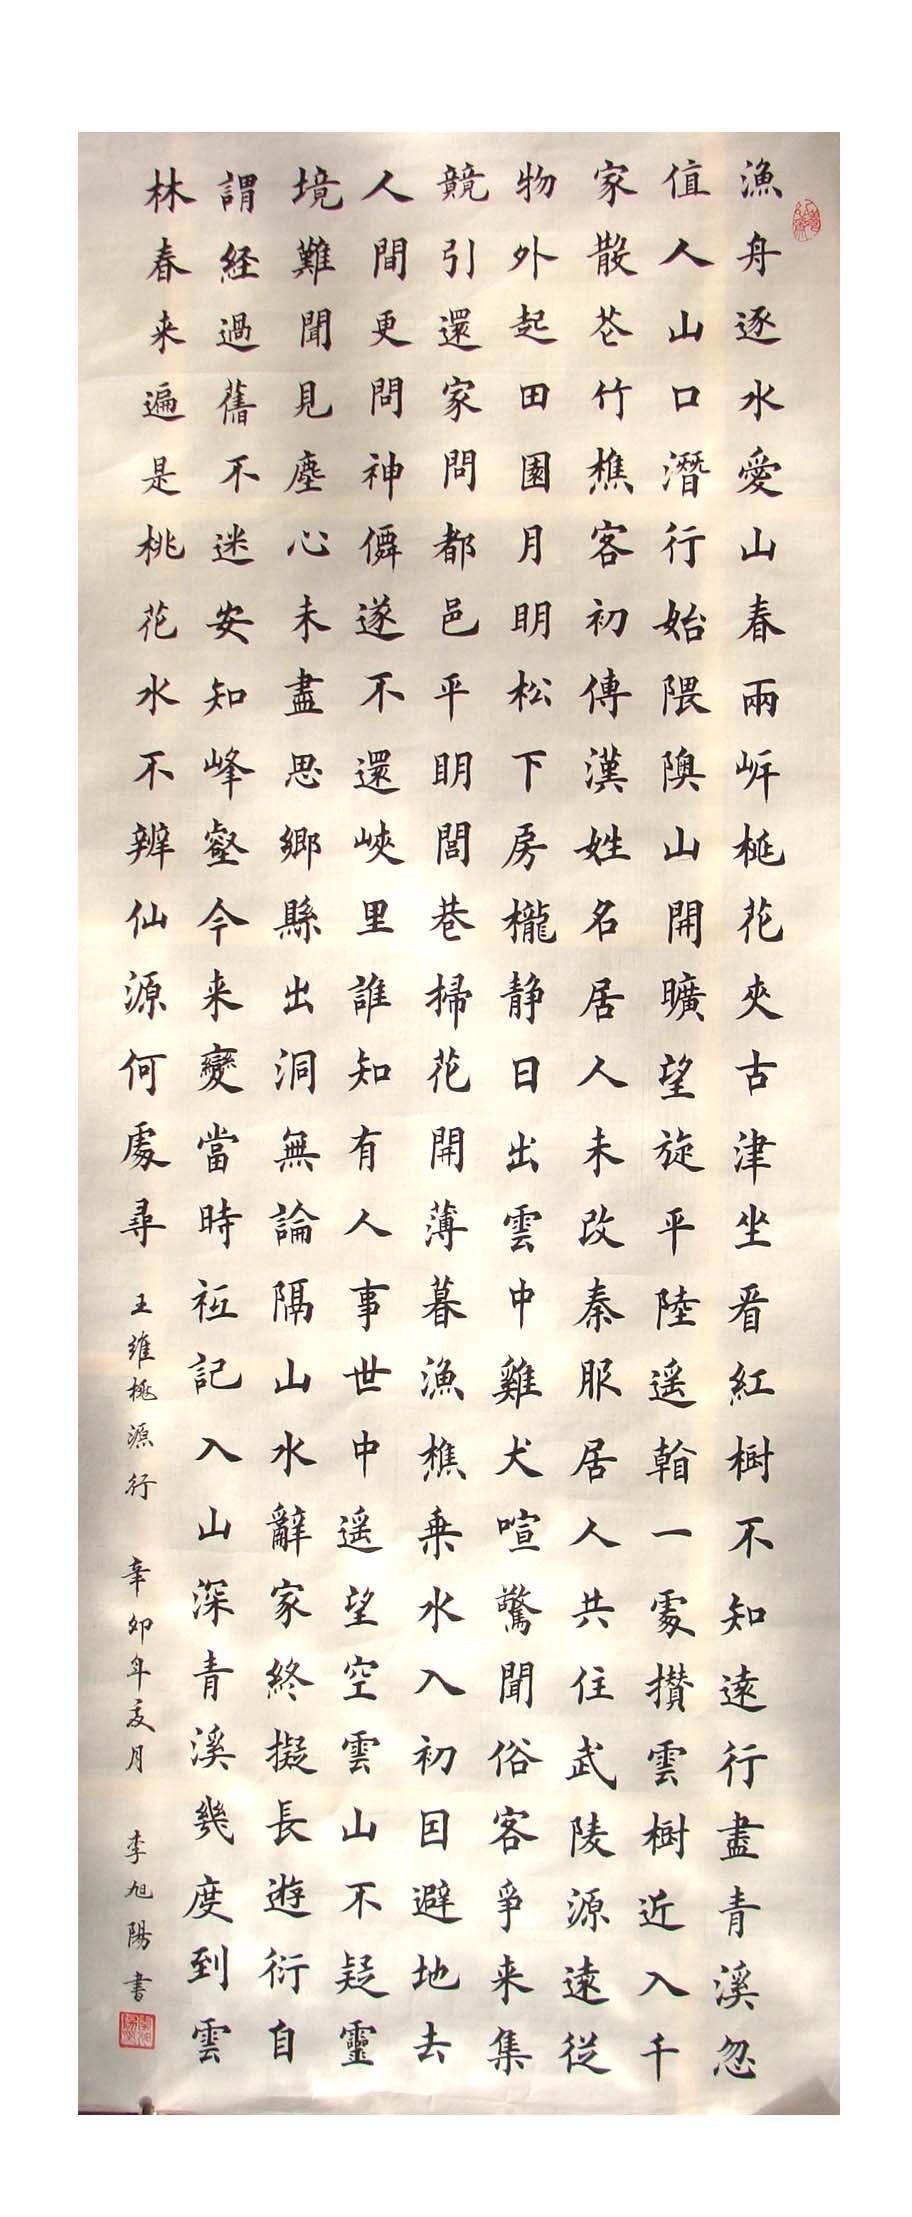 漁舟逐水愛山春兩岍桃花夾古津坐看紅樹不知遠行盡青溪忽
值人山口潛行始隈隩山開曠望旋平陸遥瞻一處攅雲樹近入千
家散花竹樵客初傳漢姓名居人未改秦服居人共住武陵源遠從
物外起田園月明松下房櫳静日出雲中雞犬喧驚聞俗客爭来集
競引還家問都邑平明閭巷掃花開薄暮漁樵乗水入初因避地去
人間更問神僊遂不還峽里誰知有人事世中遥望空雲山不疑靈
境難聞見塵心未盡思鄉縣出洞無論隔山水辭家終擬長遊衍自
謂経過舊不迷安知峰壑今来變當時祗記入山深青溪幾度到雲
林春来遍是桃花水不辨仙源何處尋
王維桃源行 辛卯年夏月 李旭陽書